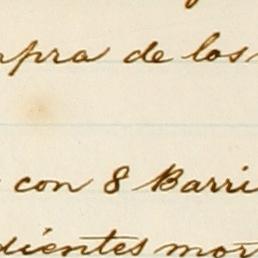 mpra de los
con 8 Barri
dientes mor